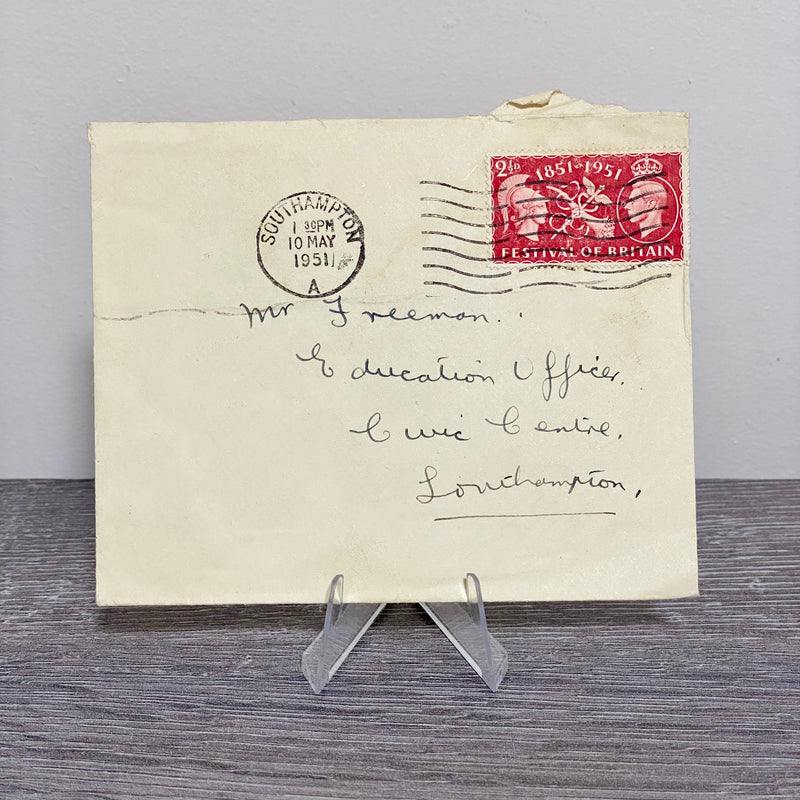 SOUTHAMPTON
1 30PM
10 MAY
1951
A
2½D 1851-1951
FESTIVAL OF BRITAIN
Mr Freeman.
Education Officer,
Civic Centre,
Southampton,